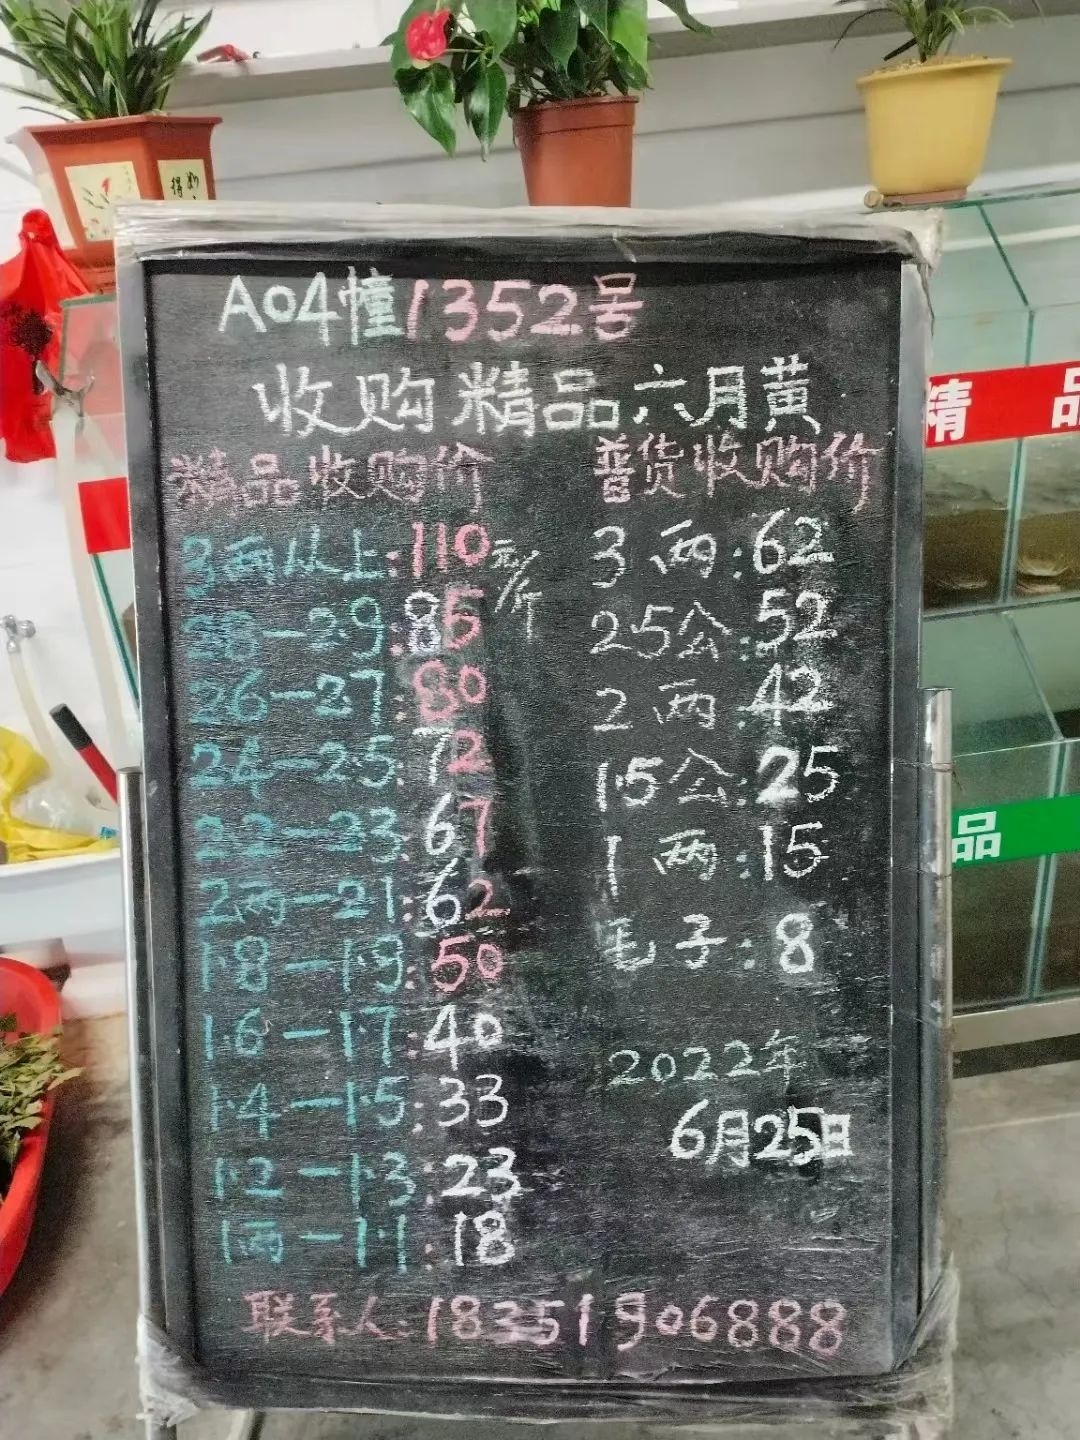 A04幢1352号
收购精品六月黄
精品收购价
3两以上:110元/斤
28-2.9:85
26-27:80
24-2.5:72
22-23:67
2两-21:62
1.8-1.9:50
1.6-1.7:40
1.4-1.5:33
1.2-1.3:23
1两-1.1:18
普货收购价
3两:62
25公:52
2两:42
1.5公:25
1两:15
毛子:8
2022年
6月25日
联系人:18351906888
精品
品